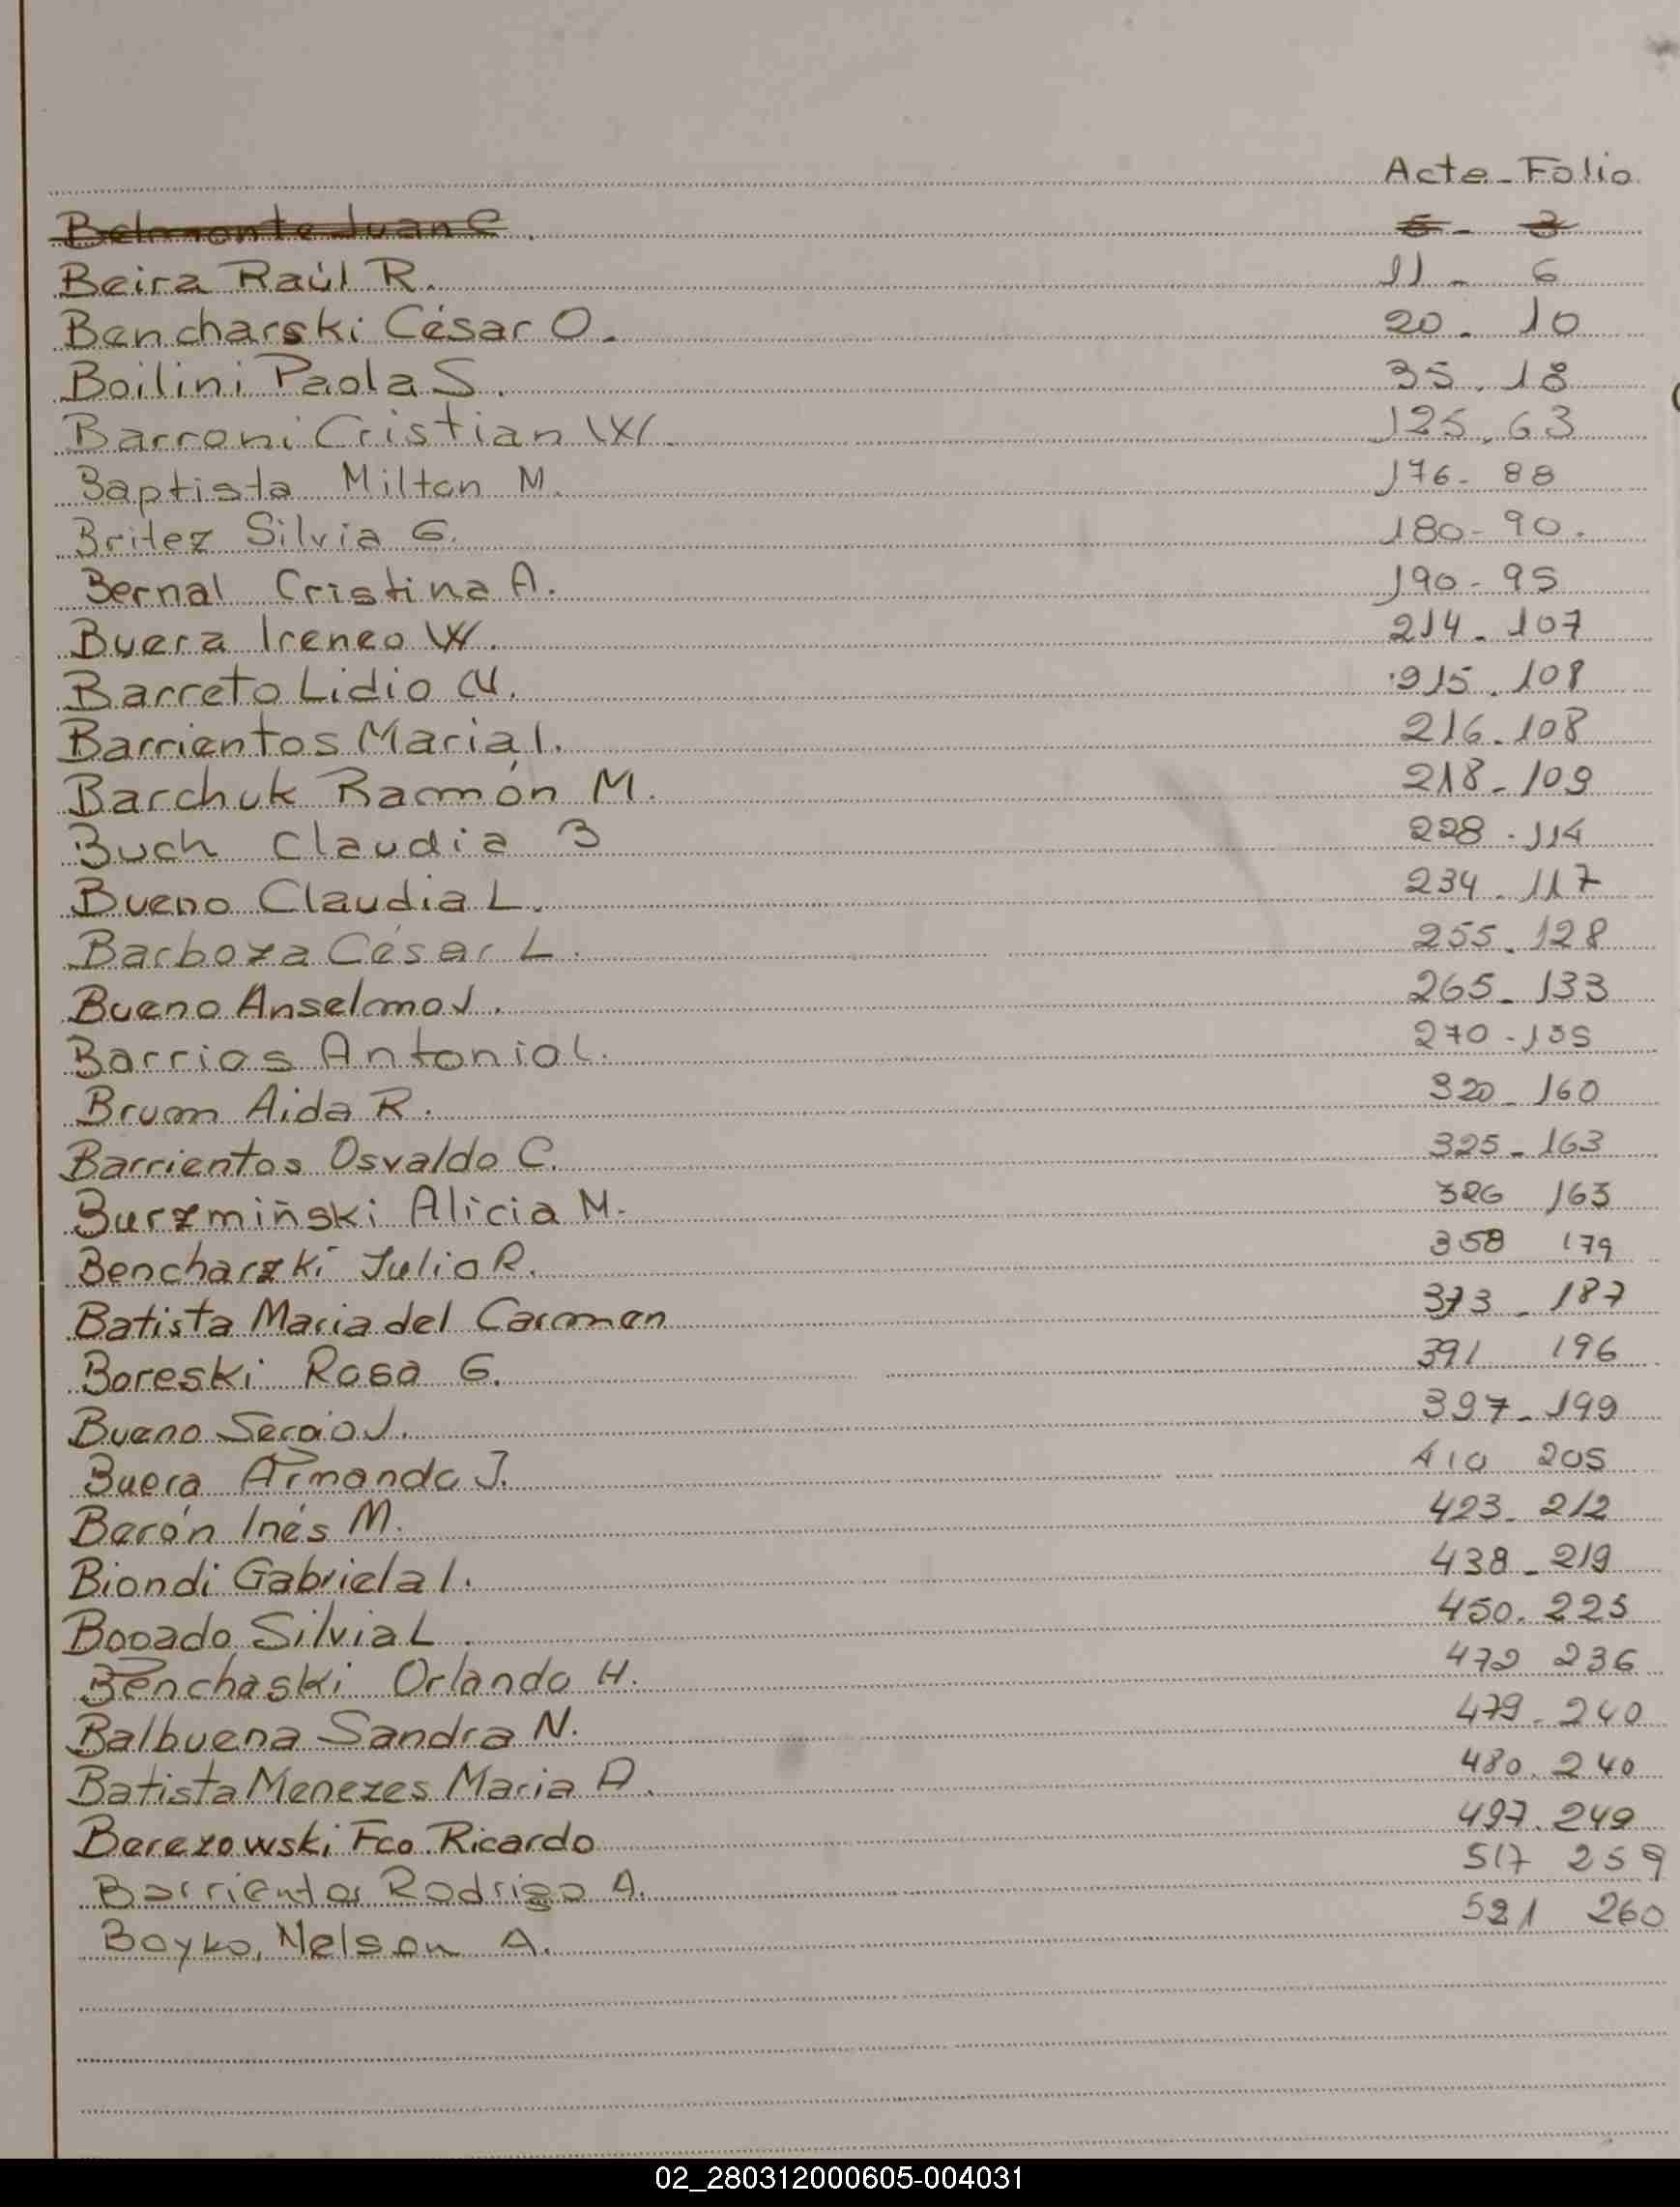 Acta - Folio
Belmonte Juan C. 5 - 3
Beira Raúl R. 11 - 6
Bencharski César O. 20 - 10
Boilini Paola S. 35 - 18
Barroni Cristian W. 125 - 63
Baptista Milton M. 176 - 88
Britez Silvia G. 180 - 90.
Bernal Cristina A. 190 - 95
Buera Ireneo W. 214 - 107
Barreto Lidio N. 215 - 108
Barrientos Maria I. 216 - 108
Barchuk Ramón M. 218 - 109
Buch Claudia B 228 - 114
Bueno Claudia L. 234 - 117
Barboza César L. 255 - 128
Bueno Anselmo J. 265 - 133
Barrios Antonio L. 270 - 135
Brum Aida R. 320 - 160
Barrientos Osvaldo C. 325 - 163
Burzmiński Alicia M. 326 163
Bencharzki Julio R. 358 179
Batista Maria del Carmen 373 - 187
Boreski Rosa G. 391 196
Bueno Sergio J. 397 - 199
Buera Armando J. 410 205
Berón Inés M. 423 - 212
Biondi Gabriela I. 438 - 219
Bogado Silvia L. 450 - 225
Benchaski Orlando H. 472 236
Balbuena Sandra N. 479 - 240
Batista Menezes Maria A. 480 - 240
Berezowski Fco. Ricardo 497 - 249
Barrientos Rodrigo A. 517 259
Boyko, Nelson A. 521 260
02_280312000605-004031